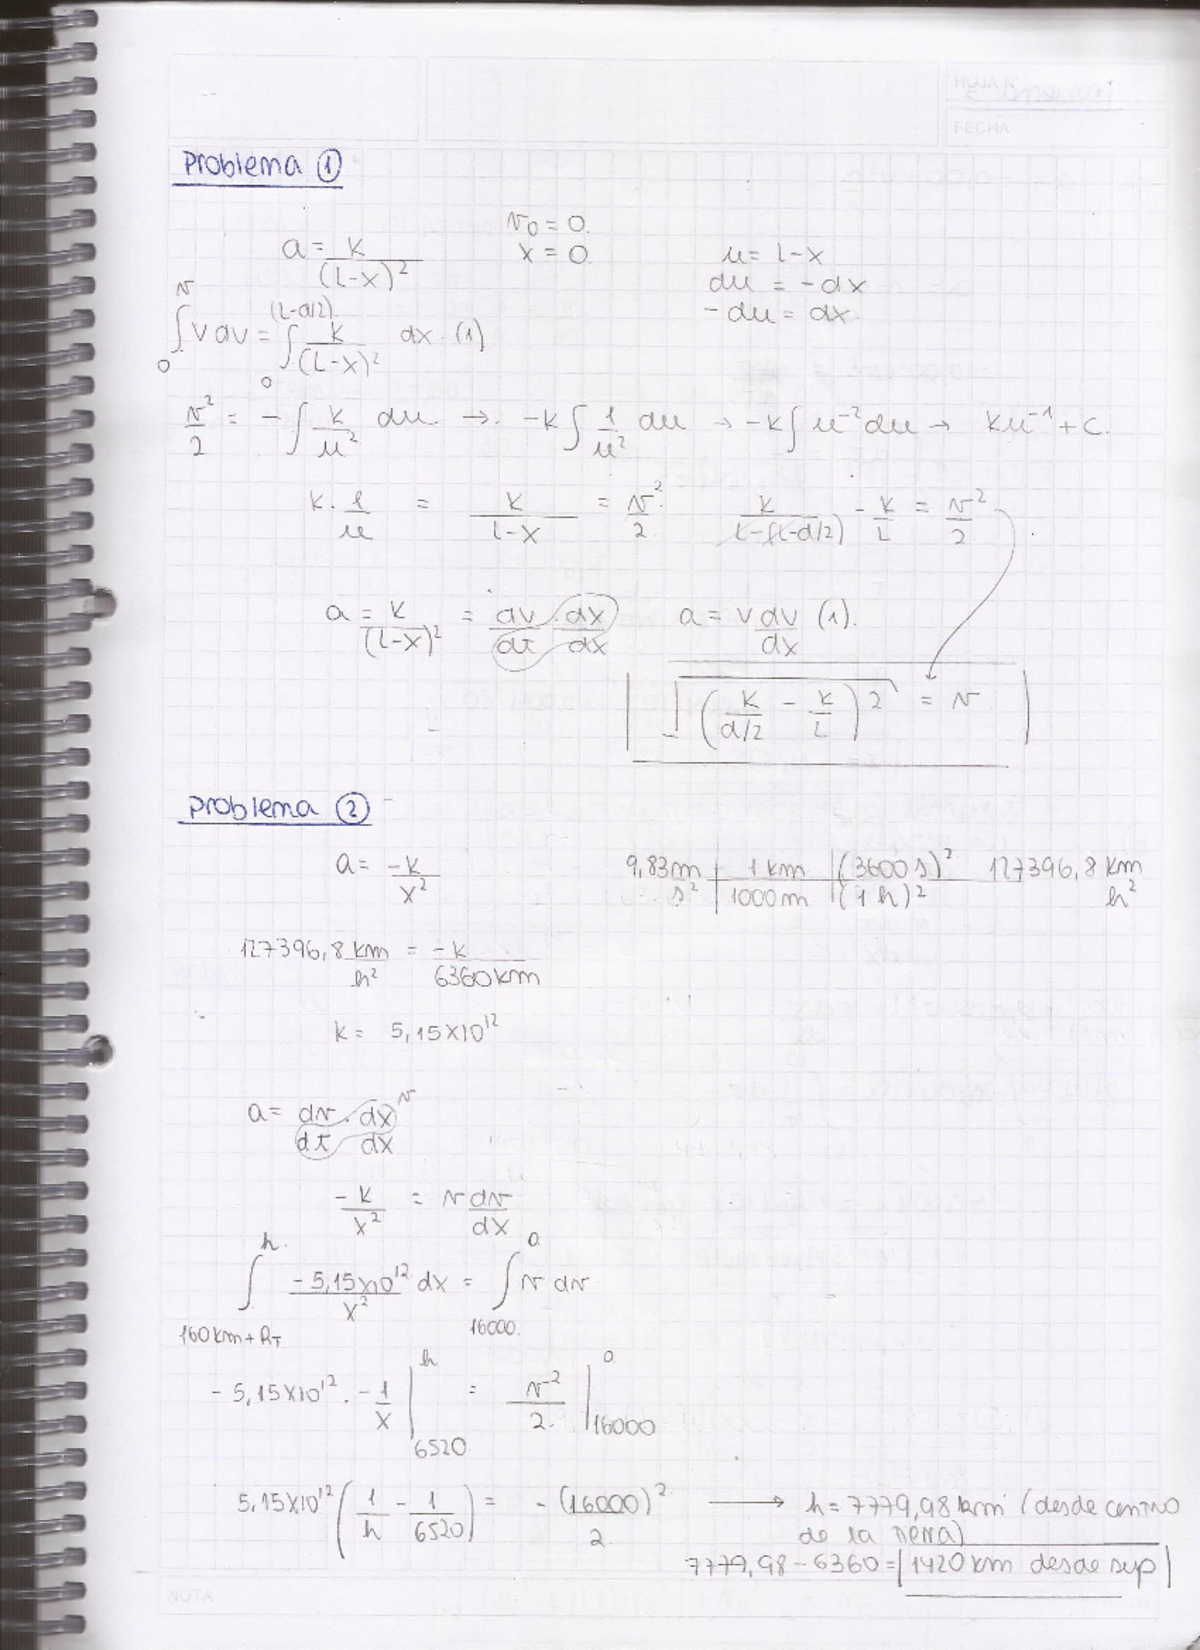 HOJA N°
FECHA
Problema ①
v₀ = 0.
a = k/(L-x)²    x = 0.    u = L-x
du = -dx
-du = dx.
∫₀^v v dv = ∫₀^(L-d/2) k/(L-x)² dx. (1)
v²/2 = -∫ k/u² du → -k∫ 1/u² du → -k∫ u⁻² du → ku⁻¹ + c.
k · 1/u = k/(L-x) = v²/2    k/(L-(L-d/2)) - k/L = v²/2
a = k/(L-x)² = dv/dt · dx/dx    a = v dv/dx (1).
√((k/(d/2) - k/L) 2) = v
Problema ②
a = -k/x²    9,83 m/s² | 1 km/1000 m | (3600 s)²/(1 h)²    127396,8 km/h²
127396,8 km/h² = -k/6360 km
k = 5,15x10¹²
a = dv/dt · dx/dx v
-k/x² = v dv/dx
∫_(160 km + R_T)^h -5,15x10¹²/x² dx = ∫_16000^0 v dv
-5,15x10¹² · -1/x |_6520^h = v²/2 |_16000^0
5,15x10¹² (1/h - 1/6520) = -(16000)²/2 → h = 7779,98 km (desde centro
de la tierra)
7779,98 - 6360 = 1420 km desde sup
NOTA